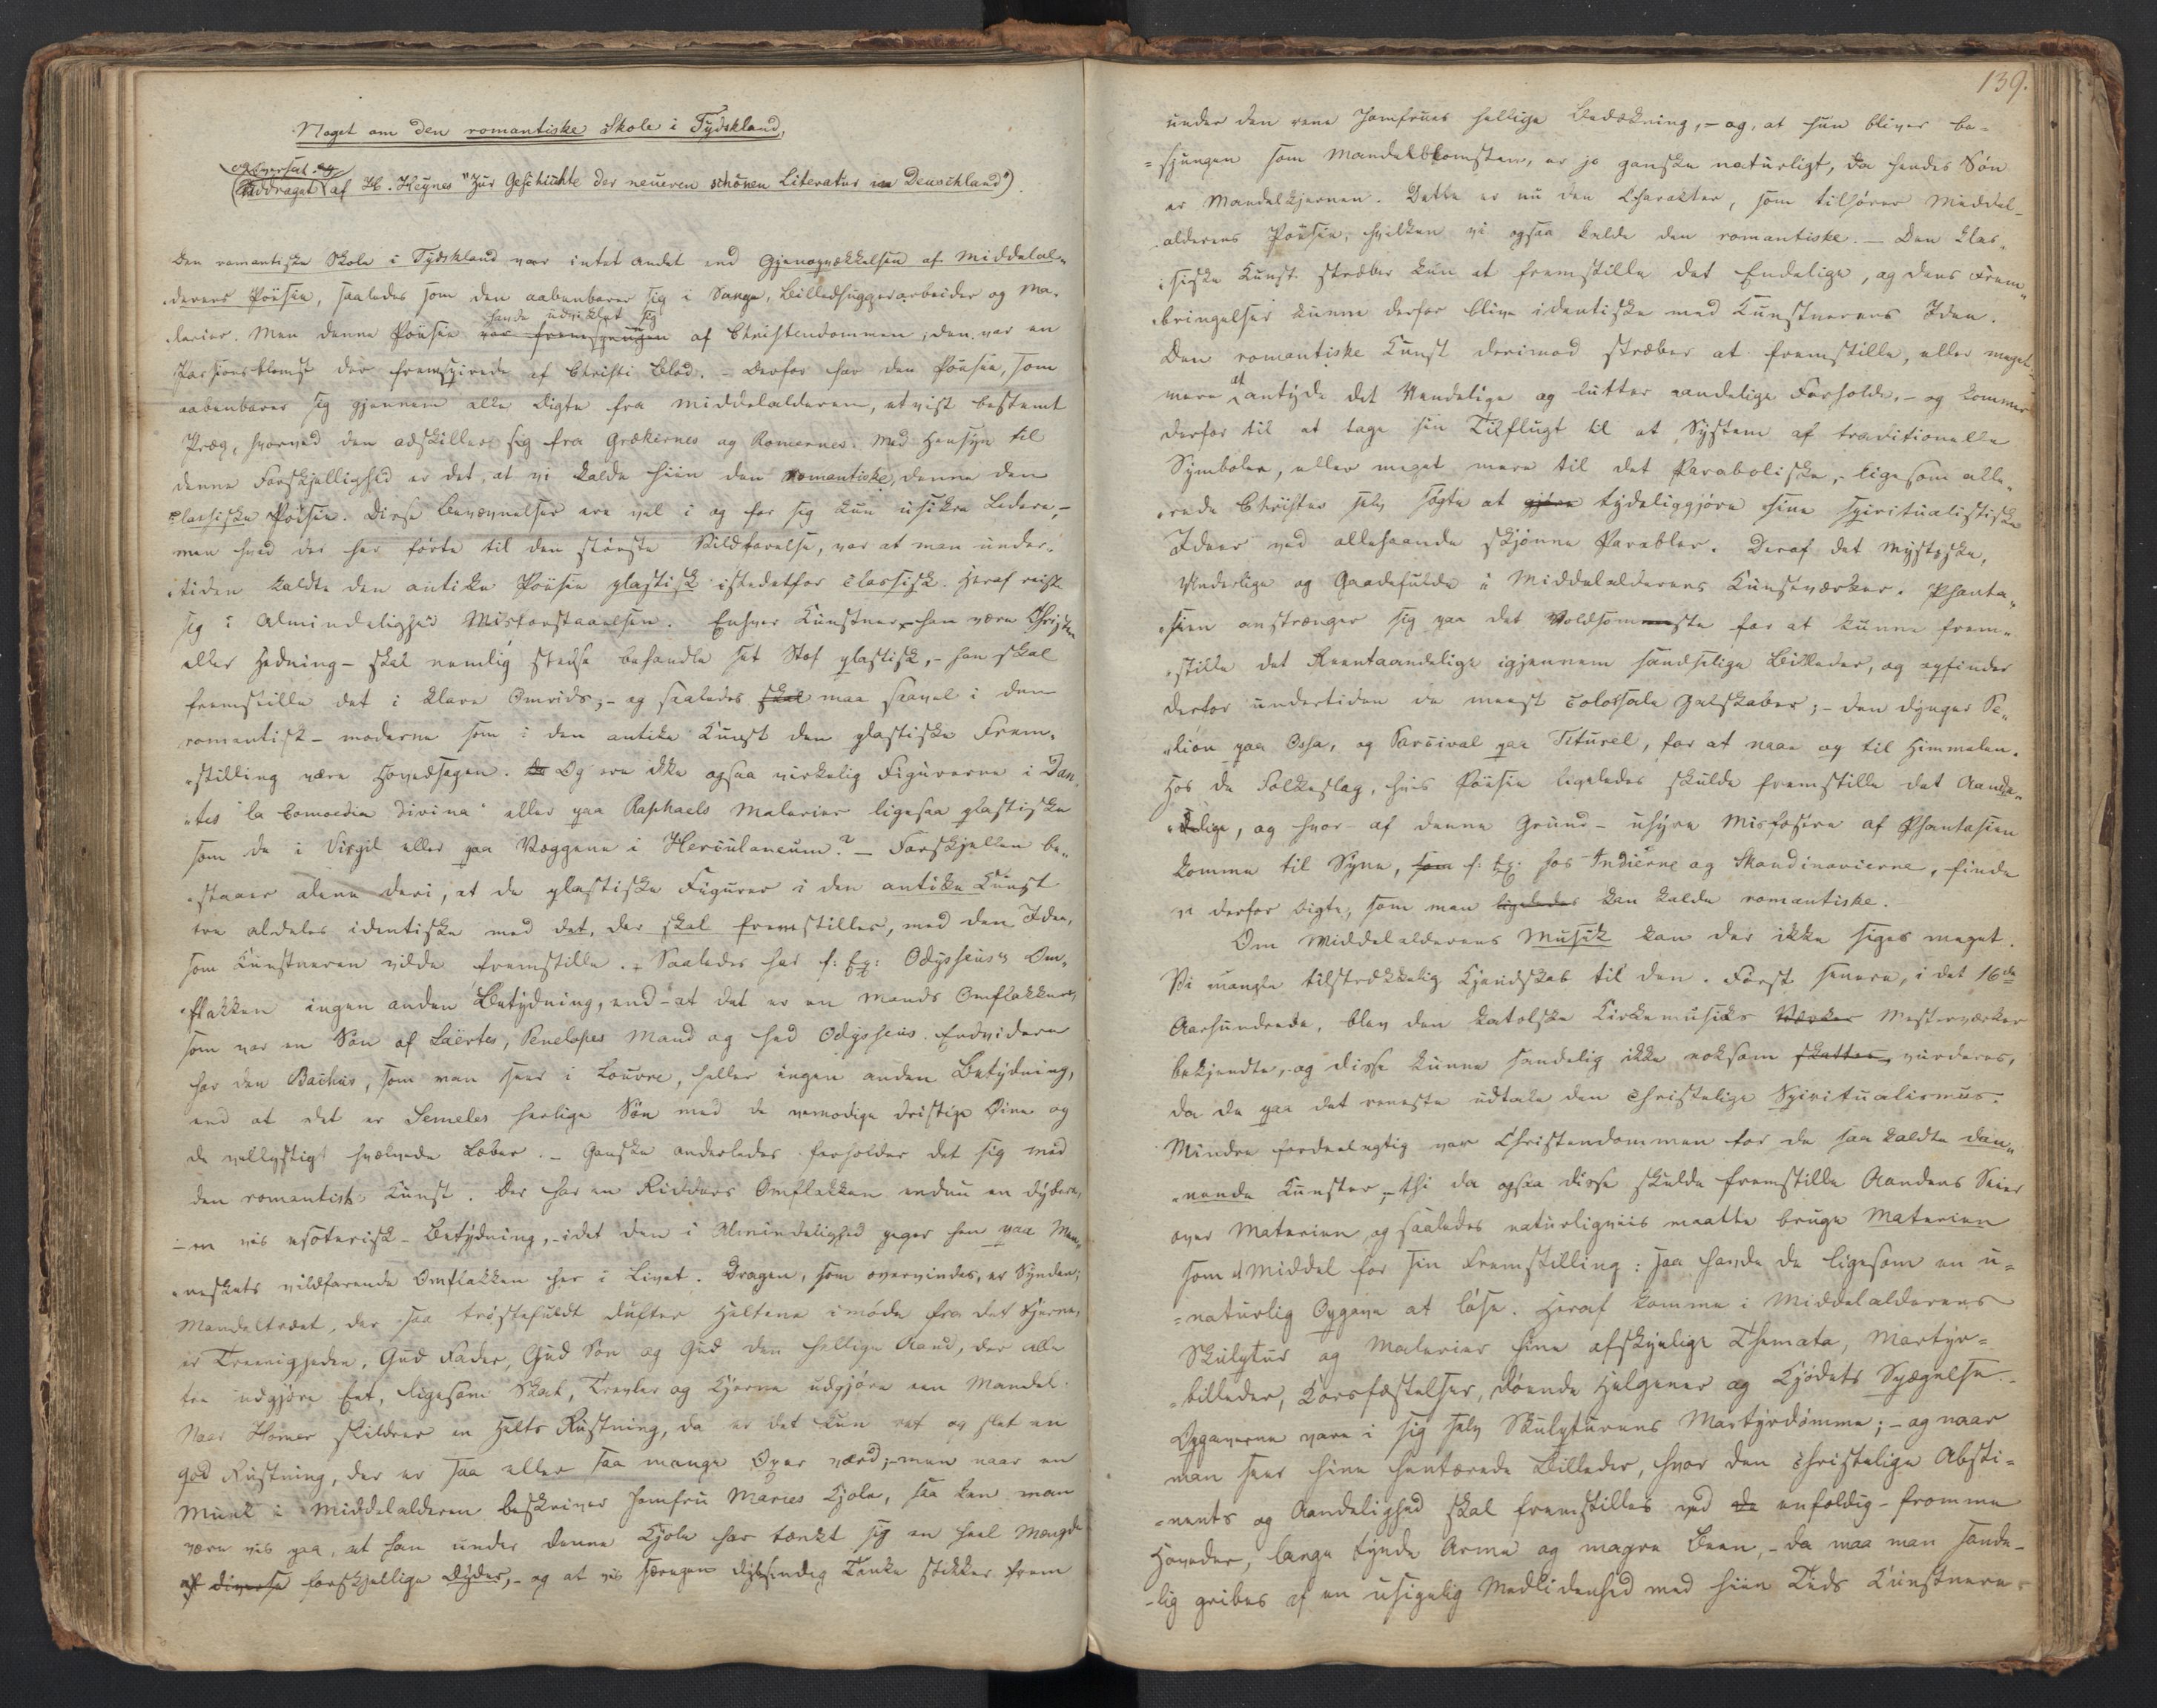 Noget om den romantiske Skole i Tydskland,
og oversat og
(uddraget af H. Heynes "Zur Geschichte der neueren schönen Literatur in Deuschland")
Den romantiske Skole i Tydskland var intet andet end Gjenopvækkelsen af Middelal-
derens Poësie, saaledes som den aabenbarer sig i Sange, Billedhuggerarbeider og Ma-
havde udviklet sig
lerier. Men denne Poësie var fremsprungen af Christendommen, den var en
Passionsblomst der fremspirede af Christi Blod. – Derfor har den Poësie, som
aabenbarer sig gjennem alle Digte fra Middelalderen, et vist bestemt
Præg, hvorved den adskiller sig fra Grækernes og Romernes. Med Hensyn til
denne Forskjellighed er det, at vi kalde hiin den romantiske, denne den
classiske Poësie. Disse Benævnelser ere vel i og for sig kun usikre Ledere, –
men hvad der her førte til den største Vildfarelse, var at man under-
tiden kaldte den antike Poësie plastisk istedetfor classisk. Heraf reiste
sig i Almindelighed Misforstaaelsen. Enhver Kunstner – han være Christen
eller Hedning – skal nemlig stedse behandle sit Stof plastisk, – han skal
fremstille det i klare Omrids; – og saaledes skal maa saavel i den
romantisk-moderne som i den antike Kunst den plastiske Frem-
stilling være Hovedsagen. Og ere ikke ogsaa virkelig Figurerne i Dan-
tes "la Comoedia divina" eller paa Raphaels Malerier ligesaa plastiske
som de i Virgil eller paa Væggene i Herculaneum? – Forskjellen be-
staaer alene deri, at de plastiske Figurer i den antike Kunst
ere aldeles identiske med det, der skal fremstilles, med den Idee,
som Kunstneren vilde fremstille. – Saaledes har f: Ex: Odysseus's Om-
flakken ingen anden Betydning, end – at det er en Mands Omflakken,
som var en Søn af Laërtes, Penelopes Mand og hed Odysseus. Endvidere
har den Bachus, som man seer i Louvre, heller ingen anden Betydning,
end at det er Semeles herlige Søn med de vemodige dristige Øine og
de vellystigt hvælvede Læber. – Ganske anderledes forholder det sig med
den romantiske Kunst. Der har en Ridders Omflakken endnu en dybere,
– en vis esoterisk – Betydning, – idet den i Almindelighed peger hen paa Men-
neskets vildfarende Omflakken her i Livet. Dragen, som overvindes, er Synden;
Mandeltræet, der saa trøstefuldt dufter Heltene imøde fra det Fjerne,
er Treenigheden, Gud Fader, Gud Søn og Gud den hellige Aand, der alle
tre udgjøre Eet, ligesom Skal, Trevler og Kjerne udgjøre een Mandel.
Naar Homer skildrer en Helts Rustning, da er det kun ret og slet en
god Rustning, der er saa eller saa mange Øxer værd; – men naar en
Munk i Middelalderen beskriver Jomfru Maries Kjole, saa kan man
være vis paa, at han under denne Kjole har tænkt sig en heel Mængde
af diverse forskjellige Dyder, – og at vis særegen dybsindig Tanke stikker frem
139.
under den rene Jomfrues hellige Bedækning, – og, at hun bliver be-
sjungen som Mandelblomsten, er jo ganske naturligt, da hendes Søn
er Mandelkjernen. Dette er nu den Charakter, som tilhører Middel-
alderens Poësie, hvilken vi ogsaa kalde den romantiske. – Den clas-
siske Kunst stræber kun at fremstille det Endelige, og dens Frem-
bringelser kunne derfor blive identiske med Kunstnerens Idee.
Den romantiske Kunst derimod stræber at fremstille, eller meget
at
mere antyde det Uendelige og lutter aandelige Forholde, – og kommer
derfor til at tage sin Tilflugt til et System af traditionelle
Symboler, eller meget mere til det Paraboliske, – ligesom alle-
rede Christus selv søgte at gjøre tydeliggjøre sine spiritualistiske
Ideer ved allehaande skjønne Parabler. Deraf det Mystiske,
Underlige og Gaadefulde i Middelalderens Kunstværker. Phanta-
sien anstrænger sig paa det Voldsomste for at kunne frem-
stille det Reentaandelige igjennem sandselige Billeder, og opfinder
derfor undertiden de meest colossale Galskaber; – den dynger Pe-
lion paa Ossa, og Parcival paa Titurel, for at naae op til Himmelen.
Hos de Folkeslag, hvis Poësie ligeledes skulde fremstille det Aande-
lige, og hvor – af denne Grund – uhyre Misfostre af Phantasien
komme til Syne, som f: Ex: hos Indierne og Skandinavierne, finde
vi derfor Digte, som man ligeledes kan kalde romantiske.
Om Middelalderens Musik kan der ikke siges meget.
Vi mangle tilstrækkelig Kjendskab til den. Først senere, i det 16de
Aarhundrede, blev den katolske Kirkemusiks Værker Mesterværker
bekjendte, og disse kunne sandelig ikke noksom skattes, vurderes,
da de paa det reneste udtale den christelige Spiritualismus.
Mindre fordeelagtig var Christendommen for de saa kaldte dan-
nende Kunster, – thi da ogsaa disse skulde fremstille Aandens Seier
over Materien, og saaledes naturligviis maatte bruge Materien
som Middel for sin Fremstilling: saa havde de ligesom en u-
naturlig Opgave at løse. Heraf komme i Middelalderens
Skulptur og Malerier hine afskyelige Themata, Martyr-
billeder, Korsfæstelser, døende Helgener og Kjødets Spægelse.
Opgaverne vare i sig selv Skulpturens Martyrdømme; – og naar
man seer hine fortærede Billeder, hvor den christelige Absti-
nents og Aandelighed skal fremstilles ved de enfoldig-fromme
Hoveder, lange tynde Arme og magre Been, – da maa man sande-
lig gribes af en usigelig Medlidenhed med hiin Tids Kunstnere